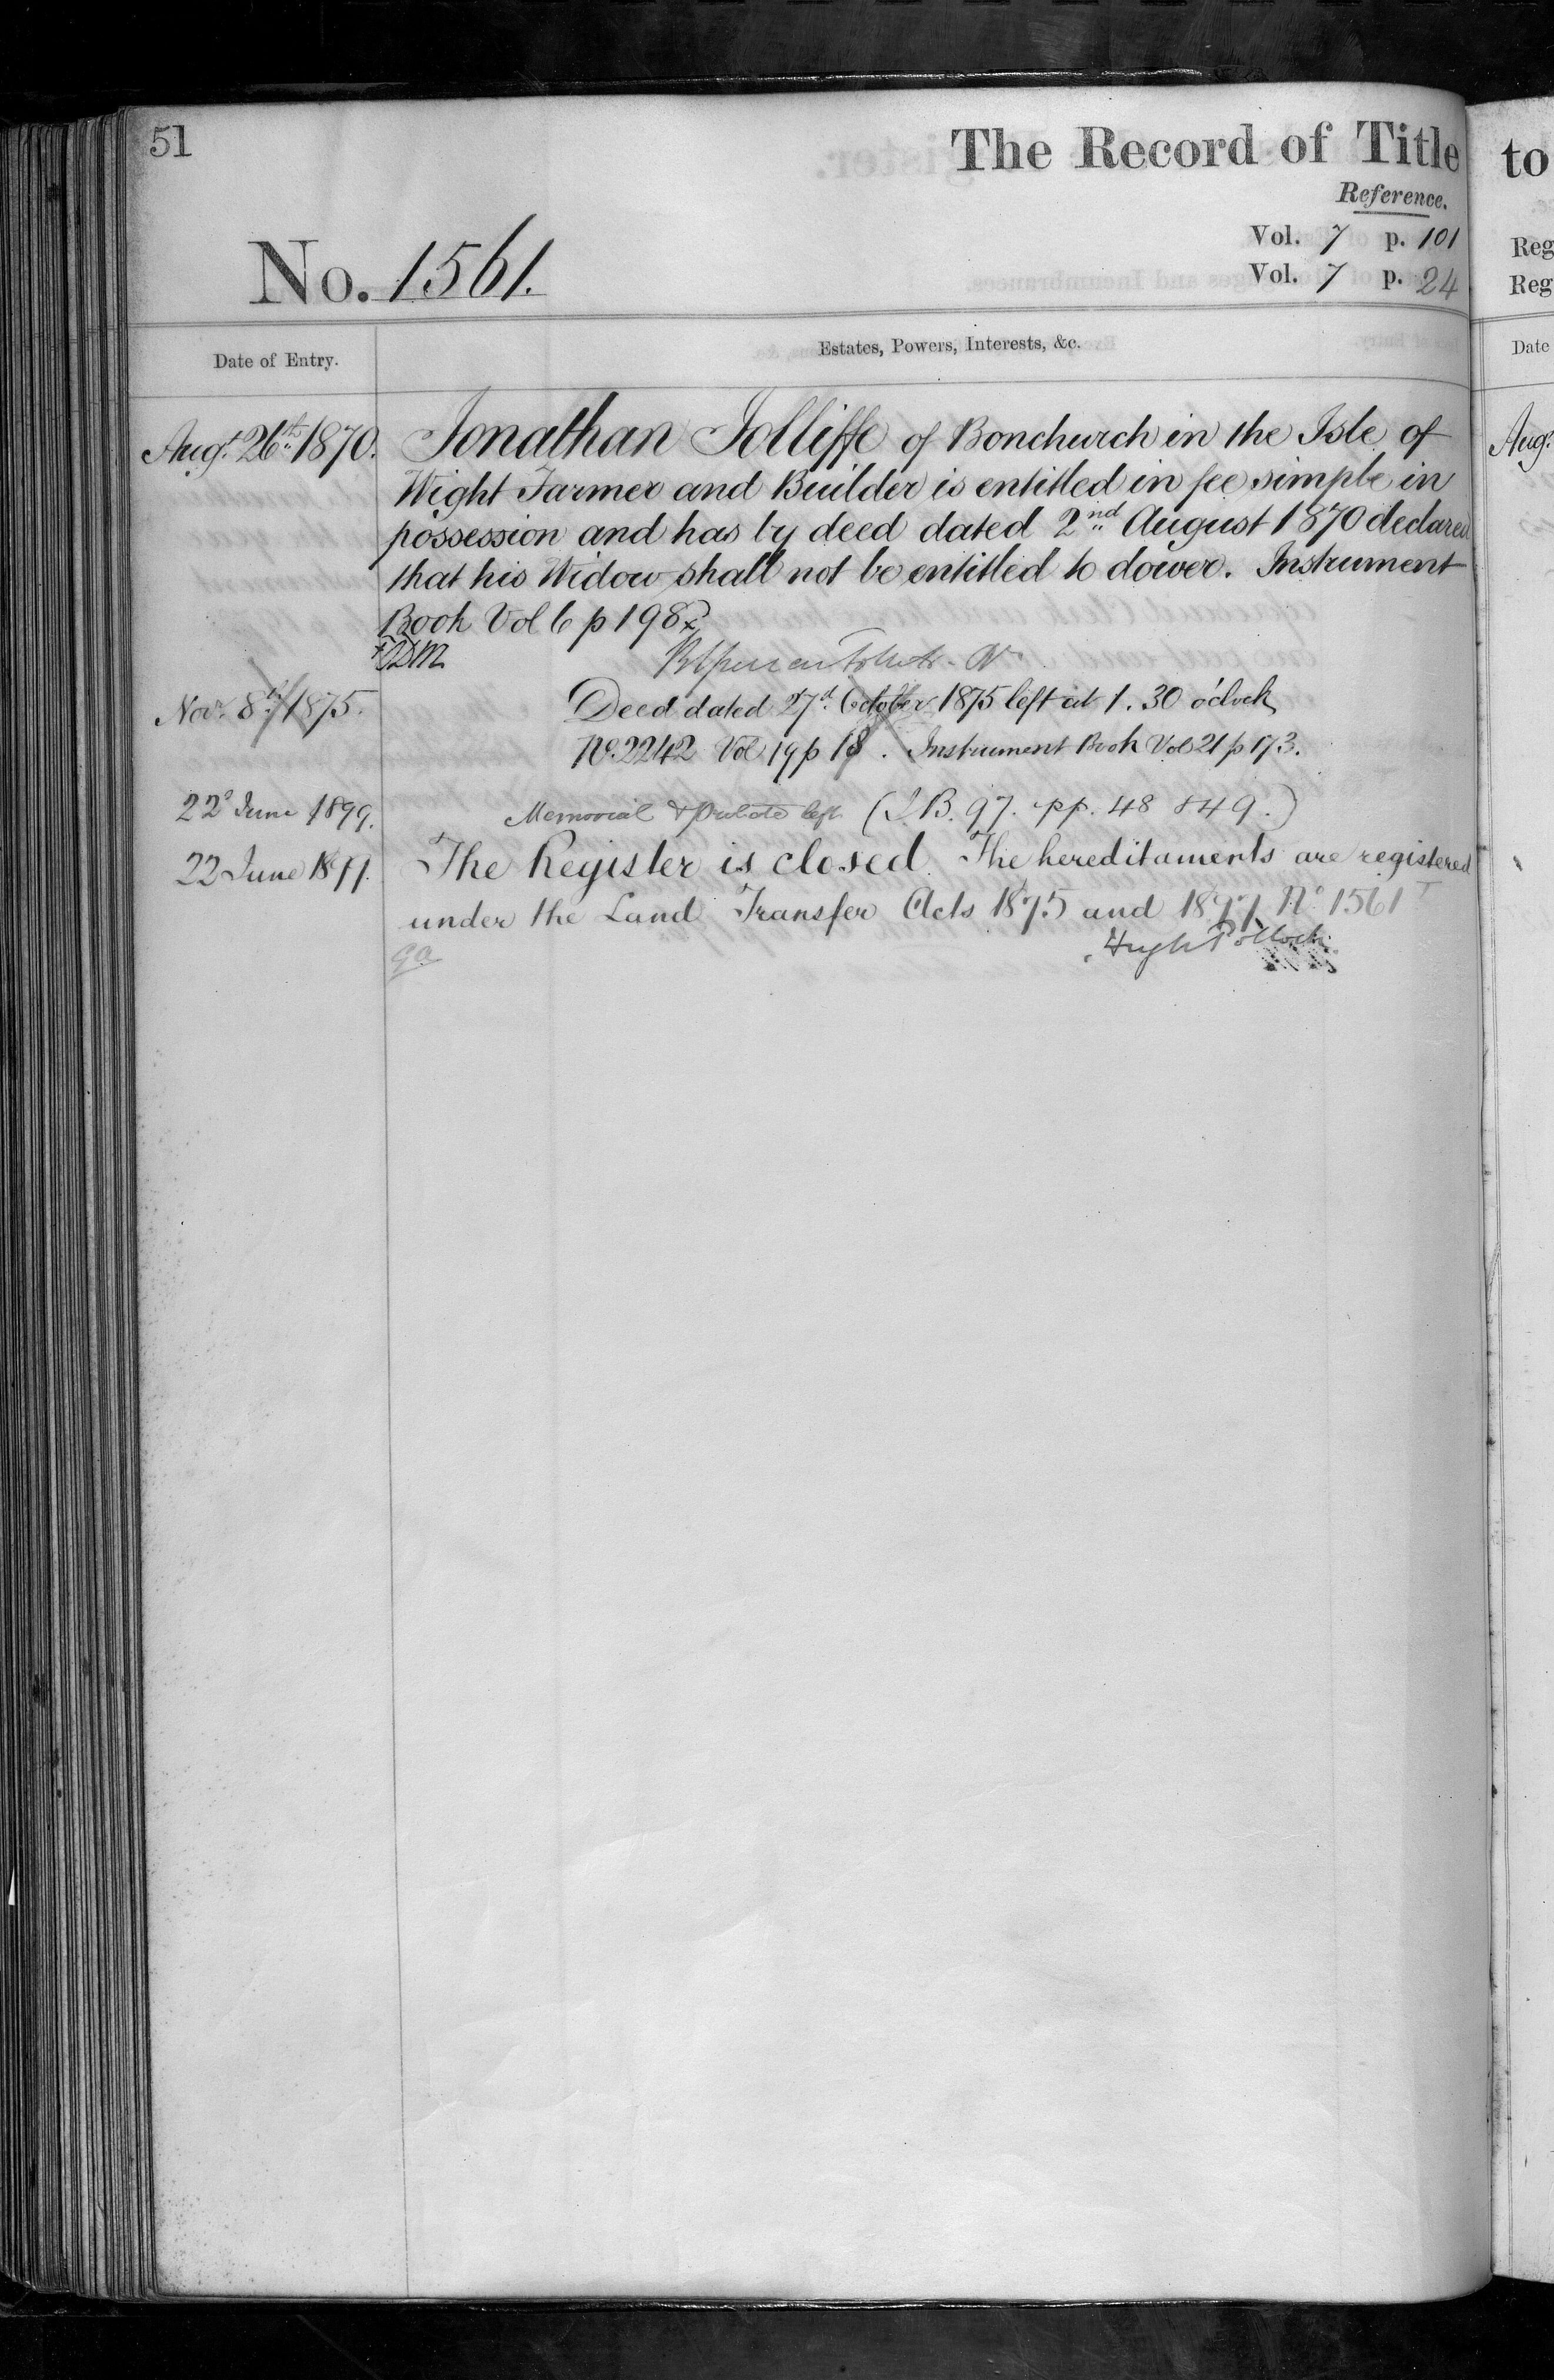 51
The Record of Title
to
Reference.
Vol. 7 p. 101
Reg
No. 1561.
Vol. 7 p. 24
Reg
Date of Entry.
Estates, Powers, Interests, &c.
Date
Augt. 26th 1870.
Jonathan Jolliffe of Bonchurch in the Isle of
Aug.
Wight Farmer and Builder is entitled in fee simple in
possession and has by deed dated 2nd August 1870 declared
that his Widow shall not be entitled to dower. Instrument
Book Vol 6 p 198
Novr. 8th 1875.
Deed dated 27th October 1875 left at 1.30 o'clock
No. 2242 Vol 19 p 18. Instrument Book Vol 21 p 173.
22d June 1899.
Memorial & probate left (I.B. 97. pp. 48 & 49.)
22 June 1899.
The Register is closed. The hereditaments are registered
under the Land Transfer Acts 1875 and 1897 No. 1561
Hugh Pollock